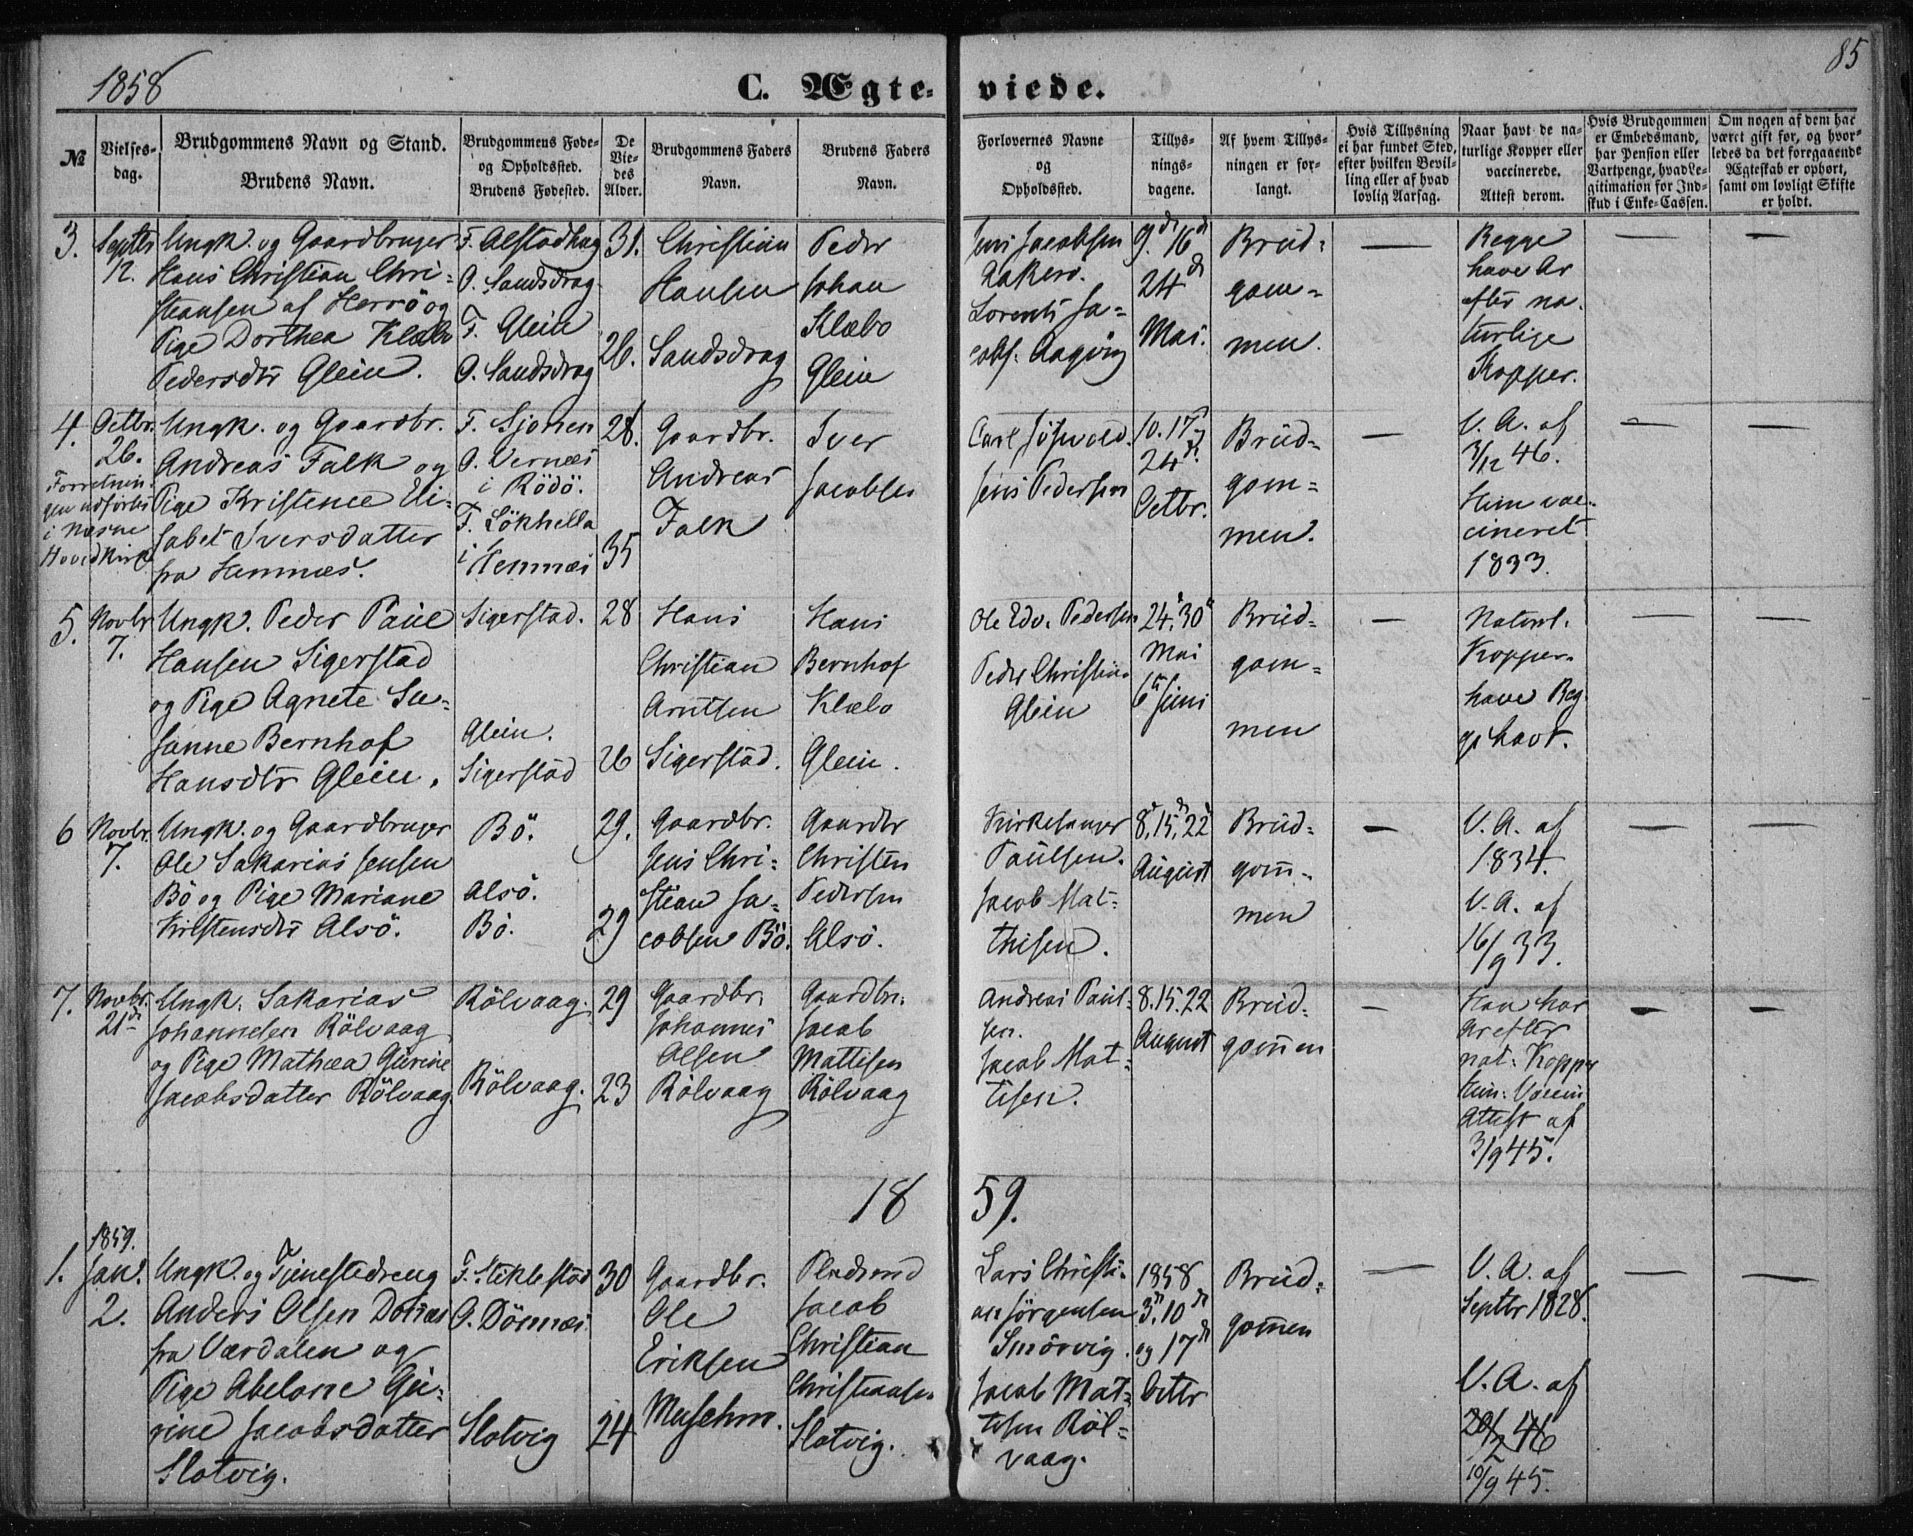 1858
85
C. Ægte-
viede.
№
Vielses-
dag.
Brudgommens Navn og Stand.
Brudens Navn.
Brudgommens Føde-
og Opholdssted.
Brudens Fødested.
De
Vie-
des
Alder.
Brudgommens Faders
Navn.
Brudens Faders
Navn.
Forlovernes Navne
og
Opholdssted.
Tillys-
nings-
dagene.
Af hvem Tillys-
ningen er for-
langt.
Hvis Tillysning
ei har fundet Sted,
efter hvilken Bevil-
ling eller af hvad
lovlig Aarsag.
Naar havt de na-
turlige Kopper eller
vaccinerede.
Attest derom.
Hvis Brudgommen
er Embedsmand,
har Pension eller
Vartpenge, hvad Le-
gitimation for Ind-
skud i Enke-Cassen.
Om nogen af dem har
været gift før, og hvor-
ledes da det foregaaende
Ægteskab er ophørt,
samt om lovligt Skifte
er holdt.
3.
Septbr
12.
Ungk. og Gaardbruger
Hans Christian Chri-
stiansen af Herrö og
Pige Dorthea Klæbo
Pedersdtr Glein.
F. Alstadhaug
O. Sandsdrag
F. Glein
O. Sandsdrag
31.
26.
Christian
Hansen
Sandsdrag
Peder
Johan
Klæbo
Glein
Jens Jacobsen
Aakerö.
Lorents Ja-
cobs. Aagvig
9d 16d
24d
Mai.
Brud-
gom-
men.
—
Begge
have Ar
efter na-
turlige
Kopper.
—
—
4.
Octbr.
26.
Forretnin-
gen udförtes
i Næsne
Hovedkirke
Ungk. og Gaardbr.
Andreas Falk og
Pige Kristence Eli-
sabet Iversdatter
fra Hemnæs.
F. Sjonen
O. Vernæs
i Rödö.
F. Lökhella
i Hemnæs
28.
35
Gaardbr.
Andreas
Falk
Iver
Jacobsen
Carl
Jens Pedersen
10. 17
24d.
Octbr.
Brud-
gom-
men.
—
V. A. af
3/12 46.
Hun vac-
cineret
1833.
—
—
5.
Novbr
7.
Ungk. Peder Paul
Hansen Sigerstad
og Pige Agnete Su-
sanne Bernhof
Hansdtr Glein.
Sigerstad.
Glein.
Sigerstad
28
26
Hans
Christian
Arntsen
Sigerstad.
Hans
Bernhof
Klæbo
Glein.
Ole Edv. Pedersen
Peder Christian
Glein
24. 30
Mai
6te Juni
Brud-
gom-
men
—
Naturl.
Kopper
have Beg-
ge havt.
—
—
6
Novbr.
7.
Ungk. og Gaardbruger
Ole Sakarias Jensen
Bö og Pige Mariane
Kristensdtr Alsö.
Bö.
Alsö.
Bö.
29.
29
Gaardbr.
Jens Chri-
stian Ja-
cobsen Bö.
Gaardbr
Christen
Pedersen
Alsö.
Kirkesanger
Paulsen.
Jacob Mat-
thisen.
8d, 15d, 22d
August
Brud-
gom-
men
—
V. A. af
1834.
V. A. af
16/9 33.
—
—
7.
Novbr.
21d
Ungk. Sakarias
Johannesen Rölvaag
og Pige Mathea Gurine
Jacobsdatter Rölvaag.
Rölvaag.
Rölvaag.
29
23
Gaardbr.
Johannes
Olsen
Rölvaag
Gaardbr.
Jacob
Mattisen
Rölvaag
Andreas Paul-
sen.
Jacob Mat-
tisen.
8. 15. 22
August
Brud-
gommen
—
Han har
Ar efter
nat: Kopper
hun: Vaccin
Attest af
3/9 45.
—
—
18
59.
1.
1859.
Jan.
2.
Ungk. og Tjenestedreng
Anders Olsen Dönæs
fra Værdalen og
Pige Abelone Gu-
rine Jacobsdatter
Slotvig.
F. Stiklestad
O. Dönnæs.
Slotvig
30
24
Gaardbr.
Ole
Eriksen
Jacob
Christian
Christiansen
Slotvig.
Lars Christi-
an Jörgensen
Smörvig.
Jacob Mat-
tisen Röl-
vaag.
1858
3d, 10d
og 17d
Octbr
Brud-
gommen
—
V. A. af
Septbr 1828.
V. A. af
10/9 45.
—
—